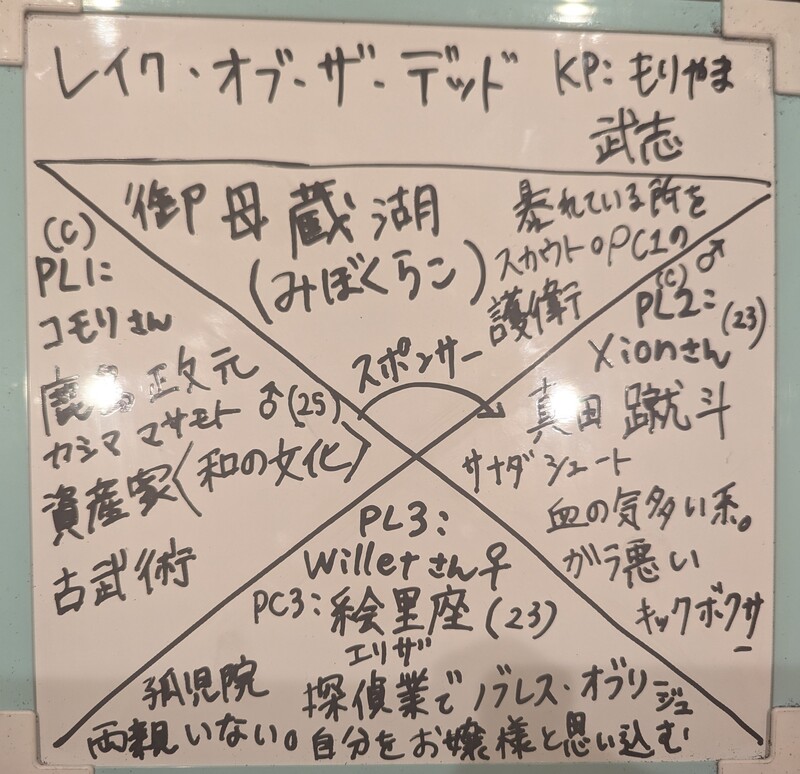 レイク・オブ・ザ・デッド KP: もりやま
武志
御母蔵湖
(みぼくらこ)
暴れている所を
スカウト。PC1の
護衛
スポンサー
(C)
PL1:
コモリさん
鹿島 正元
カシマ マサモト ♂(25)
資産家〈和の文化〉
古武術
(C) ♂
PL2: (23)
Xionさん
真田 蹴斗
サナダ シュート
血の気多い系。
ガラ悪い
キックボクサー
PL3:
Willerさん♀
PC3: 絵里座 (23)
エリザ
孤児院 探偵業でノブレス・オブリージュ
両親いない。自分をお嬢様と思い込む